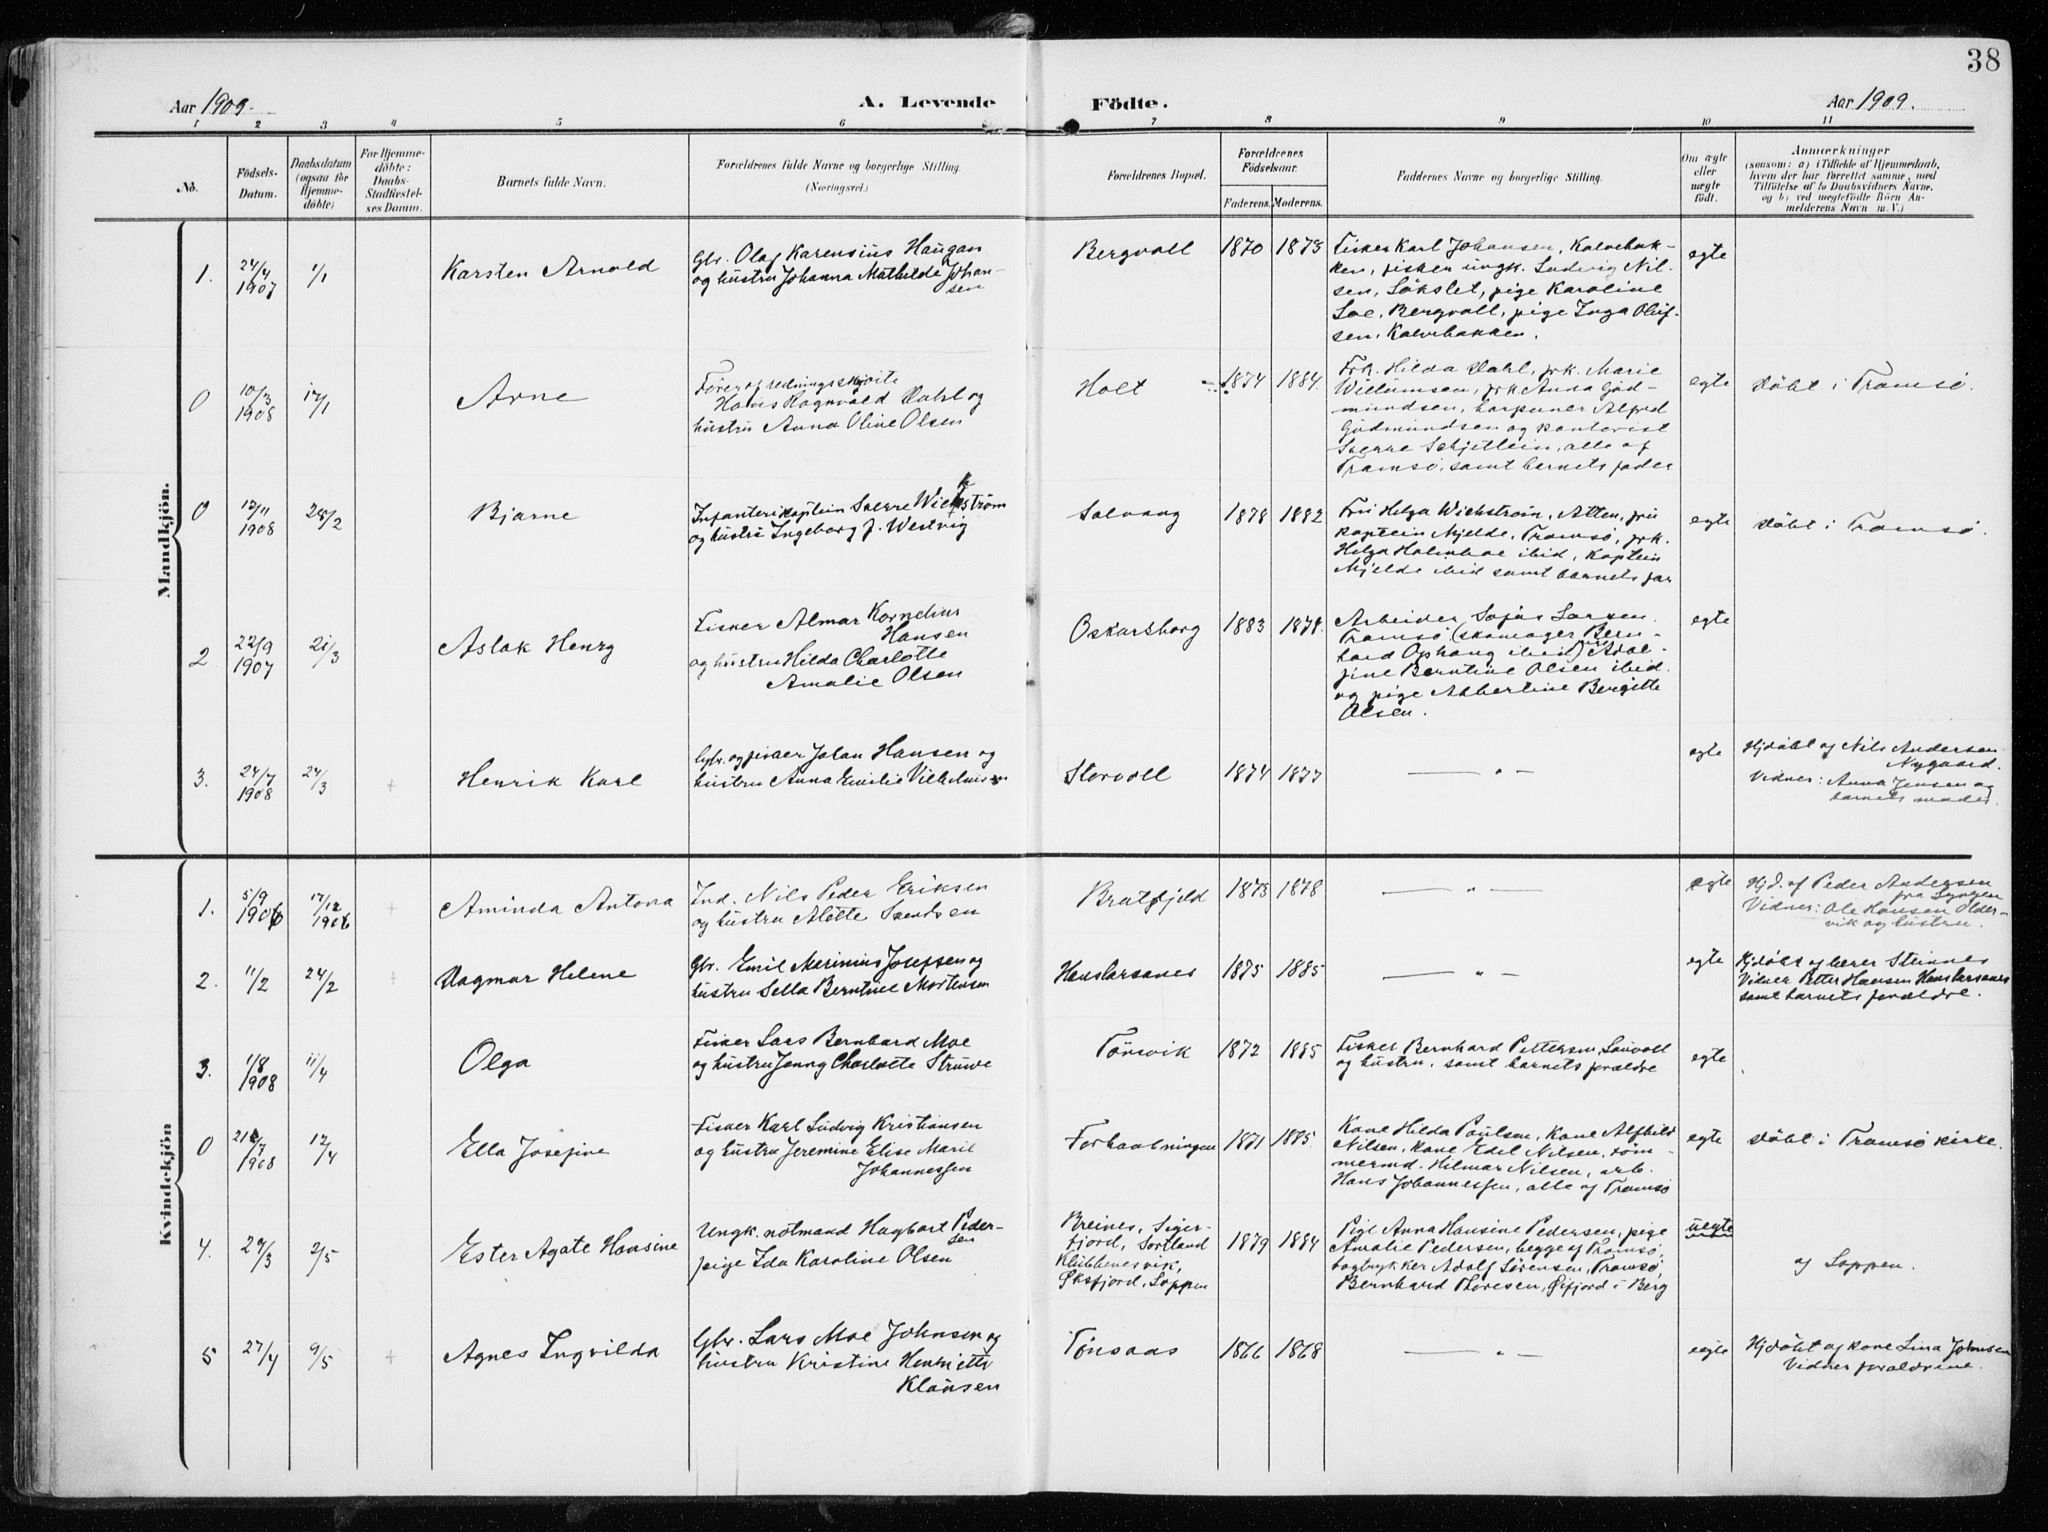 38
Aar 1909.
A. Levende
Födte.
Aar 1909.
1 2 3 4 5 6 7 8 9 10 11
No.
Födsels-
Datum.
Daabsdatum
(ogsaa for
Hjemme-
döbte)
For Hjemme-
döbte:
Daabs-
Stadfæstel-
ses Datum.
Barnets fulde Navn.
Forældrenes fulde Navne og borgerlige Stilling.
(Næringsvei.)
Forældrenes Bopæl.
Forældrenes
Födselsaar.
Faderens. Moderens.
Faddernes Navne og borgerlige Stilling.
Om ægte
eller
uægte
födt.
Anmærkninger
(saasom: a) i Tilfælde af Hjemmedaab,
hvem der har forrettet samme, med
Tilföielse af to Daabsvidners Navne,
og b) ved uægtefödte Börn An-
melderens Navn m. V.)
Mandkjön.
1.
24/4
1907
1/1
Karsten Arnold
Gbr. Olaf Karensius Haugan
og hustru Johanna Mathilde Johan-
sen
Bergvoll
1870 1873
Fisker Karl Johansen, Kalvebak-
ken, fisker ungk. Ludvig Nil-
sen, Løkslet, pige Karoline
Loe, Bergvoll, pige Inga Oluf-
sen, Kalvebakken.
egte
0
10/3
1908
17/1
Arne
Fører af redningsskøite
Hans Ragnvald Dahl og
hustru Anna Oline Olsen
Holt
1874 1884.
Frk. Hilda Dahl, frk. Marie
Willumsen, frk Anda Gud-
mundsen, harpuner Alfred
Gudmundsen og kontorist
Sverre Schjetlein, alle af
Tromsø, samt barnets fader
egte
døbt i Tromsø.
0
12/11
1908
28/2
Bjarne
Infanterikaptein Sverre Wickstrøm
og hustru Ingeborg f. Westvig
Solvang
1878 1882
Fru Helga Wichstrøm, Alten, fru
kaptein Mjelde, Tromsø, frk.
Helga Holmboe ibid, kaptein
Mjelde ibid samt barnets far
egte
døbt i Tromsø.
2
22/9
1907
21/3
Aslak Henry
Fisker Almar Kornelius
Hansen
og hustru Hilda Charlotte
Amalie Olsen
Oskarsborg
1883 1878.
Arbeider Sofus Larsen
Tromsø (skomager Bern-
hard Ophaug ibid) Adol-
fine Berntine Olsen ibid.
og pige Albertine Bergitte
Olsen.
egte
3.
24/7
1908
24/3
+
Henrik Karl
Gbr. og fisker Johan Hansen og
hustru Anna Emilie Vilhelmsen
Storvoll
1874 1877
— " —
egte
Hjdøbt af Nils Andersen
Nygaard.
Vidner: Anna Jensen og
barnets moder.
Kvindekjön
1.
5/9
1906
17/12
1906
+
Aminda Antona
Ind. Nils Peder Eriksen
og hustru Alette Svendsen
Bratfjeld
1873 1878
— " —
egte
Hjd. af Peder Andersen
fra Lyngen
Vidner: Ole Hansen Older-
vik og hustru.
2.
11/2
24/2
+
Dagmar Helene
Gbr. Emil Marinius Josefsen og
hustru Sella Berntine Mortensen
Hanslarsanes
1875 1885
— " —
egte
Hjdøbt af lærer Steinnes
Vidner Petter Hansen Hanslarsanes
samt barnets forældre.
3.
1/8
1908
11/4
Olga
Fisker Lars Bernhard Moe
og hustru Jenny Charlotte Struwe
Tønsvik
1872 1885
Fisker Bernhard Pettersen, Lauvoll
og hustru, samt barnets forældre
egte
0
21/7
1908
12/4
Ella Josefine
Fisker Karl Ludvig Kristiansen
og hustru Jeremine Elise Marie
Johannessen
Forhaabningen
1871 1885.
Kone Hilda Poulsen, Kone Alfhild
Nilsen, kone Edel Nilsen, tøm-
mermd. Hilmar Nilsen, arb.
Hans Johannessen, alle af Tromsø
egte
døbt i Tromsø kirke.
4.
24/3
2/5
Ester Agate Hansine
Ungk. notmand Hagbart Peder-
sen
pige Ida Karoline Olsen
Breines, Siger-
fjord, Sortland
Klubbenesvik,
Øksfjord, Loppen
1879 1884
Pige Anna Hansine Pedersen, pige
Amalie Pedersen, begge af Tromsø,
bogtrykker Adolf Sørensen, Tromsø
Bernhard Thoresen, Øifjord i Berg
uegte
af Loppen.
5
27/4
9/5
+
Agnes Ingvilda
Gbr. Lars Moe Johnsen og
hustru Kristine Henriette
Klausen
Tønsaas
1866 1868
— " —
egte
Hjdøbt af kone Lina Johnsen
Vidner forældrene.